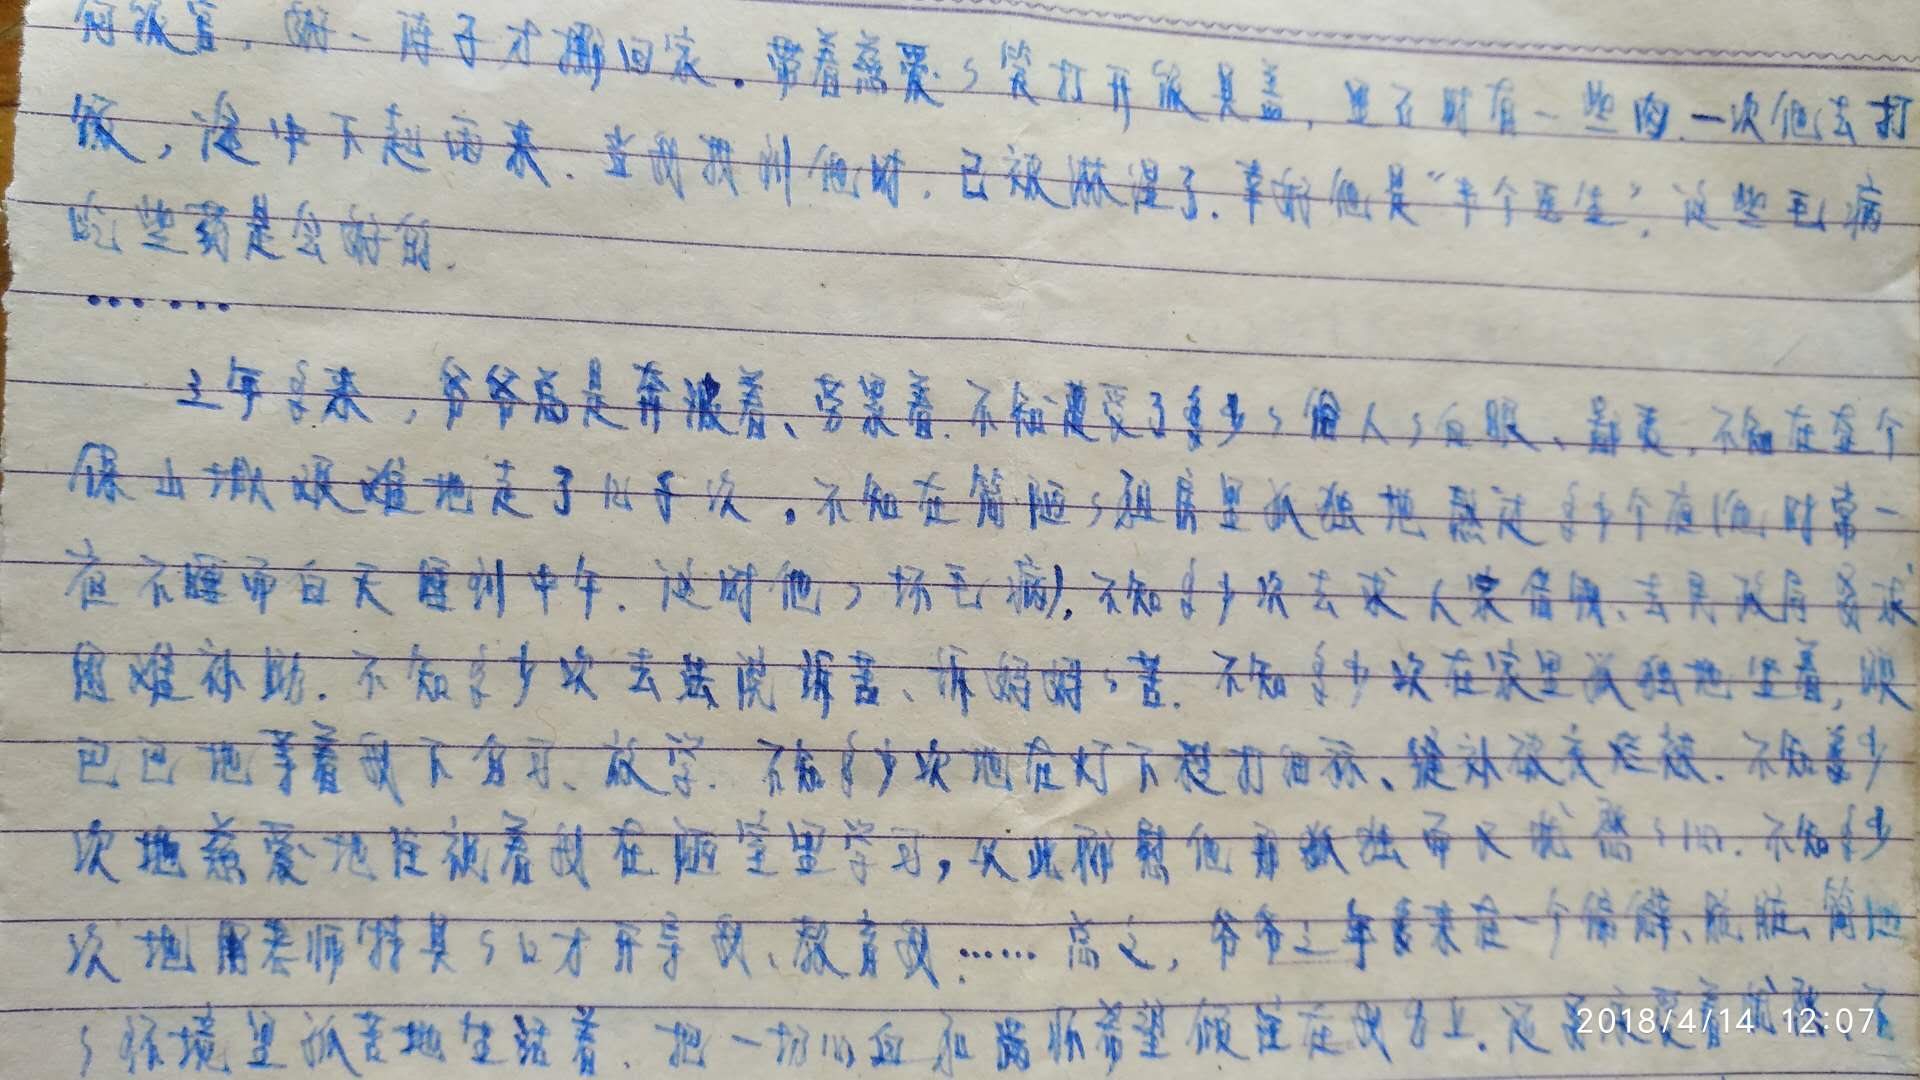 饭官，好一阵子才挪回家。带着慈爱的笑打开饭具盖，里面时有一些肉。一次他去打
饭，途中下起雨来。当我找到他时，已被淋湿了。幸好他是“半个医生”，这些毛病
吃些药是会好的。
……
三年多来，爷爷总是奔波着、劳累着。不知遭受了多少的俗人的白眼、鄙夷，不知在整个
保山城艰难地走了几千次，不知在简陋的租房里孤独地熬过多少个夜(他时常一
夜不睡而白天睡到中午。这时他的坏毛病)，不知多少次去求人家借钱、去民政局要求
困难补助。不知多少次去法院诉苦、诉妈妈的苦。不知多少次在家里孤独地坐着，眼
巴巴地等着我下自习、放学。不知多少次地在灯下缝补破衣烂裤。不知多少
次地慈爱地注视着我在陋室里学习，以此聊慰他那孤独而又忧愁的心。不知多少
次地用老师特具的口才开导我、教育我……总之，爷爷三年多来在一个偏僻、肮脏、简陋
的环境里孤苦地生活着，把一切心血和满怀希望倾注在我身上。还承受着
2018/4/14 12:07